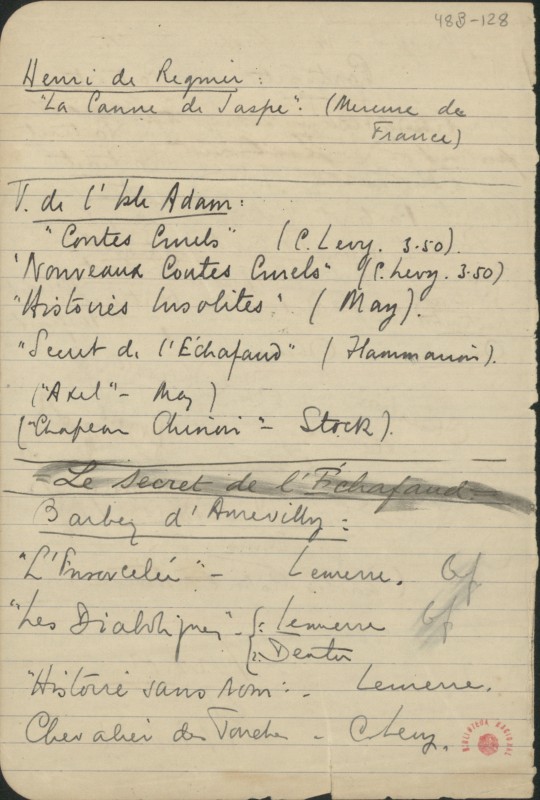 48B-128
Henri de Regnier:
"La Canne de Jaspe". (Mercure de
France)
V. de l'Isle Adam:
"Contes Cruels" (C. Levy. 3.50).
"Nouveaux Contes Cruels" (C. Levy. 3.50)
"Histoires Insolites" (May).
"Secret de l'Échafaud" (Flammarion).
("Axel" - May)
("Chapeau Chinois" - Stock).
- Le Secret de l'Échafaud -
Barbey d'Aurevilly:
"L'Ensorcelée" - Lemerre.
"Les Diaboliques" - { 1: Lemerre
2: Dentu
"Histoire sans nom: - Lemerre.
Chevalier des Touches - C. Levy.
BIBLIOTECA NACIONAL